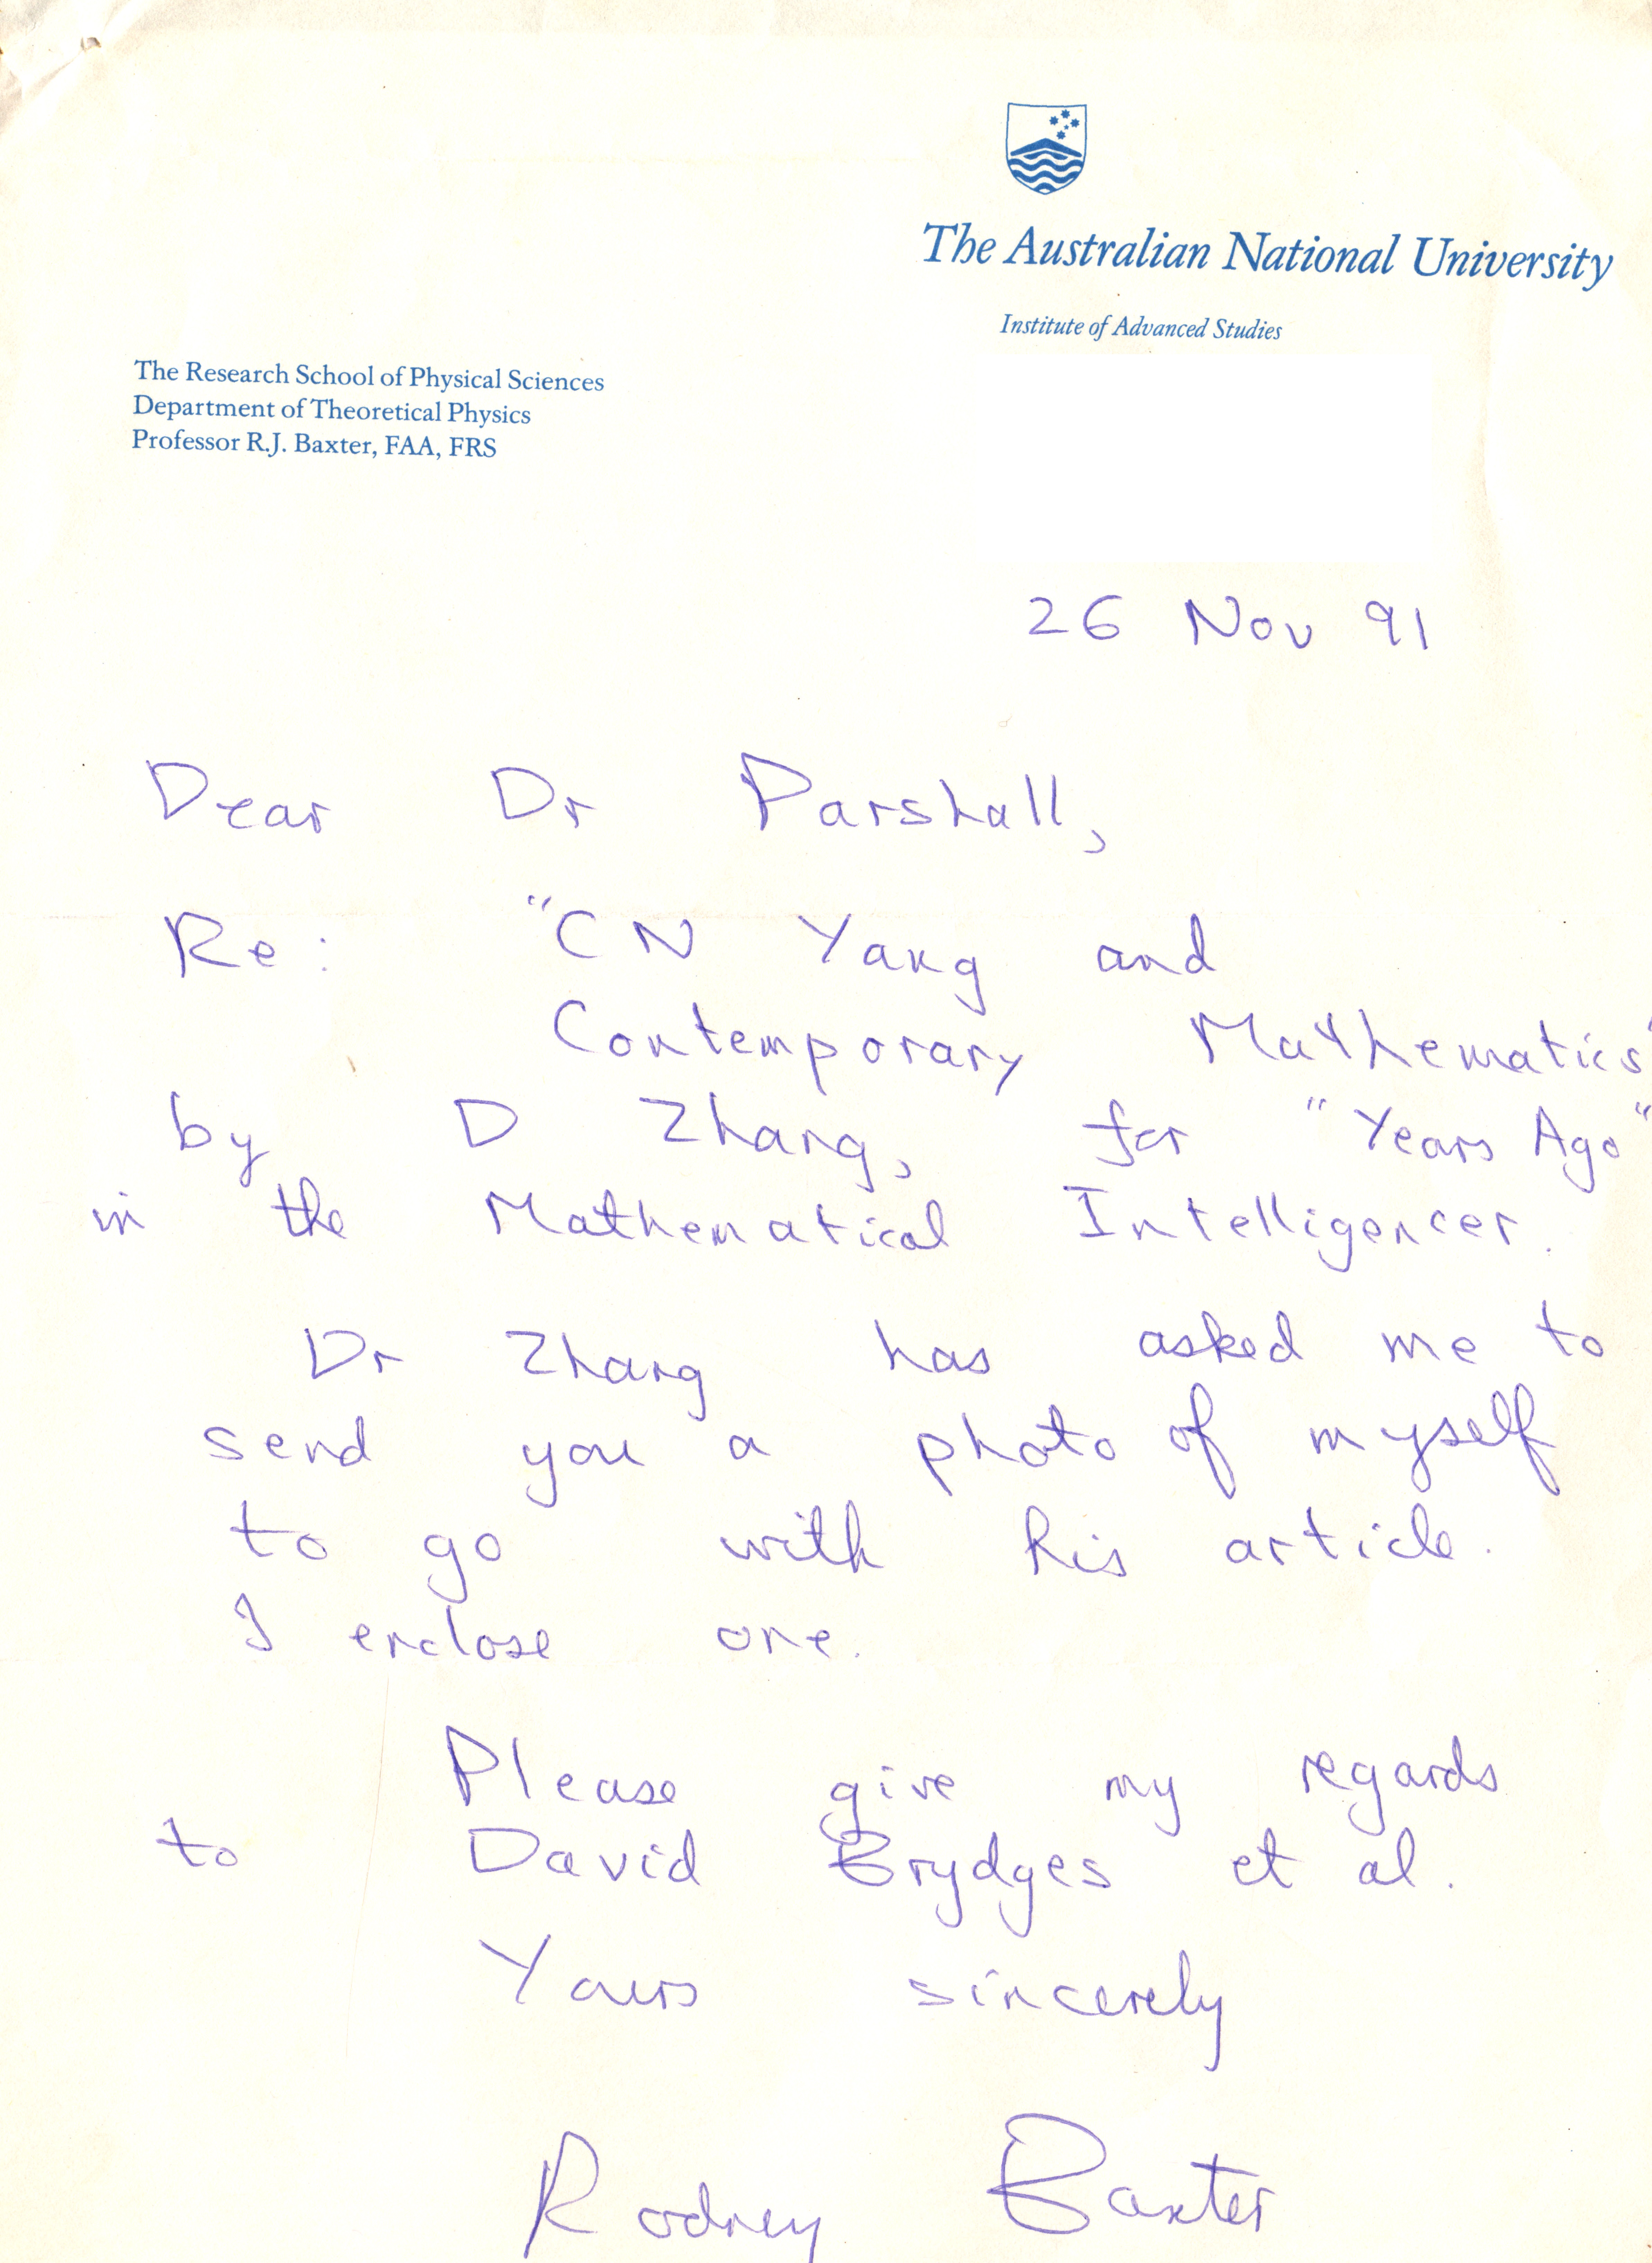 The Australian National University
Institute of Advanced Studies
The Research School of Physical Sciences
Department of Theoretical Physics
Professor R.J. Baxter, FAA, FRS
26 Nov 91
Dear Dr Parshall,
Re: "CN Yang and
Contemporary Mathematics"
by D Zhang, for "Years Ago"
in the Mathematical Intelligencer.
Dr Zhang has asked me to
send you a photo of myself
to go with his article.
I enclose one.
Please give my regards
to David Brydges et al.
Yours sincerely
Rodney Baxter